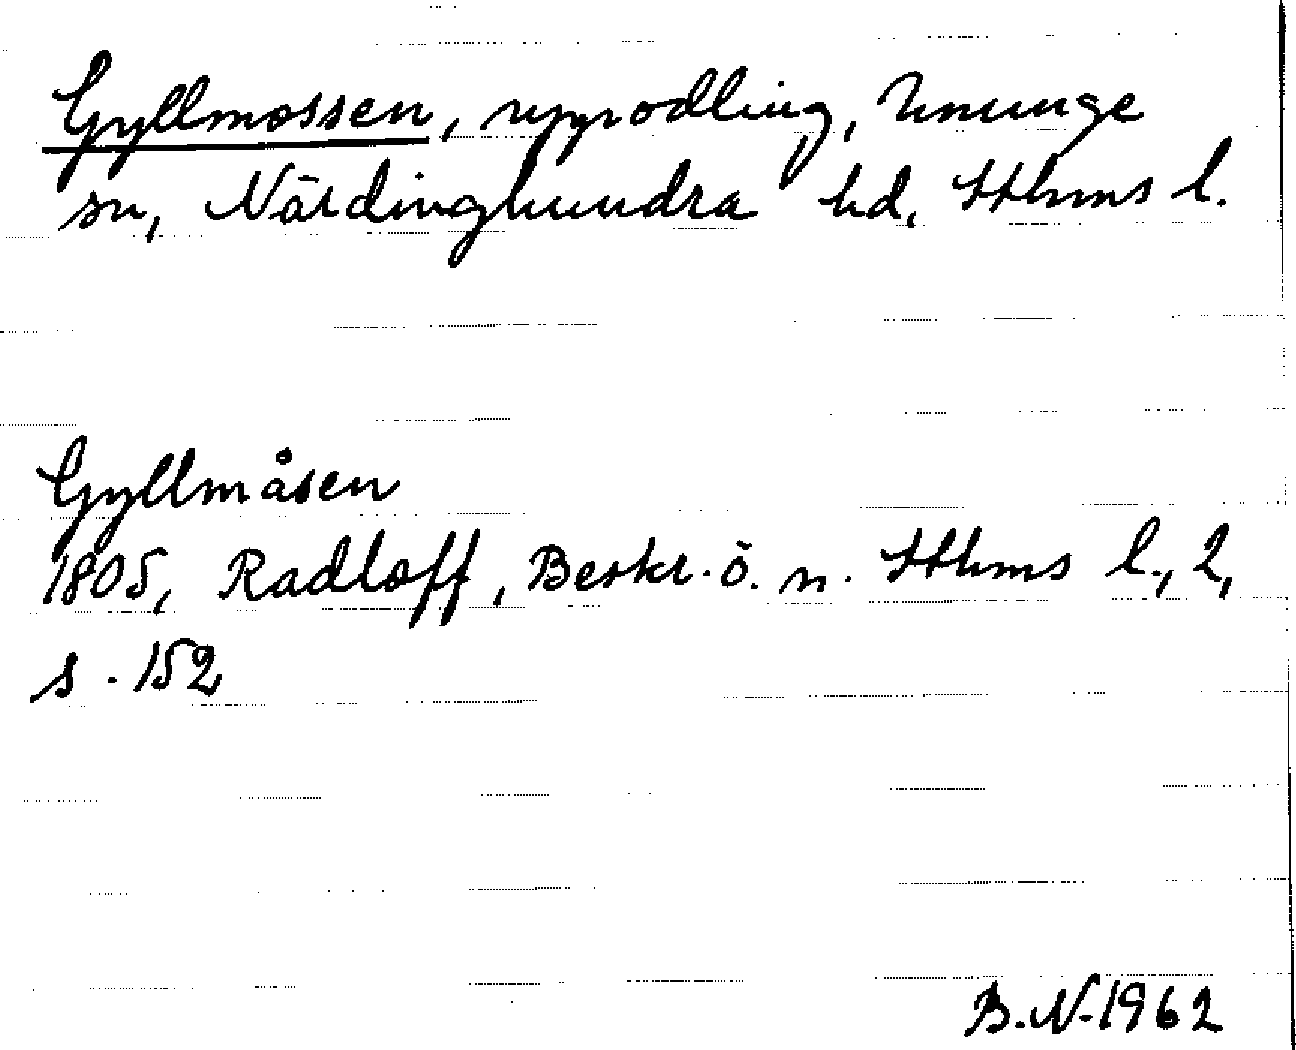 Gyllmossen, uppodling, Knunge
sn, Närdinghundra hd, Sthms l.
Gyllmåsen
1805, Radloff, Beskr. ö. n. Sthms l., 2,
s. 152
B.N. 1962